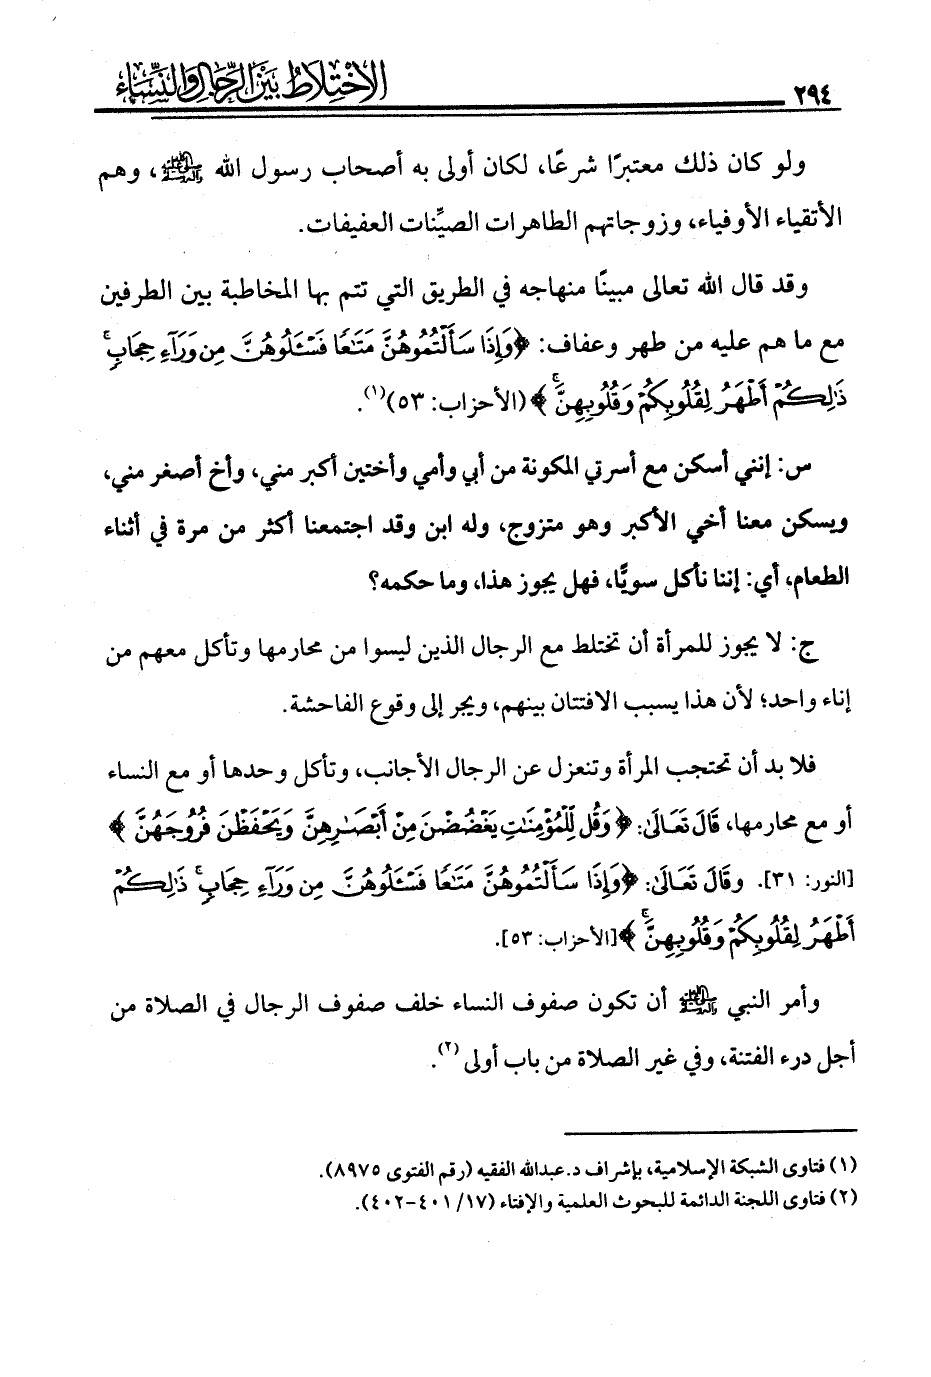 ٢٩٤ الاختلاط بين الرجال والنساء
ولو كان ذلك معتبرًا شرعًا، لكان أولى به أصحاب رسول الله ﷺ، وهم
الأتقياء الأوفياء، وزوجاتهم الطاهرات الصيِّنات العفيفات.
وقد قال الله تعالى مبينًا منهاجه في الطريق التي تتم بها المخاطبة بين الطرفين
مع ما هم عليه من طهر وعفاف: ﴿وَإِذَا سَأَلْتُمُوهُنَّ مَتَٰعًا فَسْـَٔلُوهُنَّ مِن وَرَآءِ حِجَابٍ ۚ
ذَٰلِكُمْ أَطْهَرُ لِقُلُوبِكُمْ وَقُلُوبِهِنَّ ۚ﴾ (الأحزاب: ٥٣)(١).
س: إنني أسكن مع أسرتي المكونة من أبي وأمي وأختين أكبر مني، وأخ أصغر مني،
ويسكن معنا أخي الأكبر وهو متزوج، وله ابن وقد اجتمعنا أكثر من مرة في أثناء
الطعام، أي: إننا نأكل سويًّا، فهل يجوز هذا، وما حكمه؟
ج: لا يجوز للمرأة أن تختلط مع الرجال الذين ليسوا من محارمها وتأكل معهم من
إناء واحد؛ لأن هذا يسبب الافتتان بينهم، ويجر إلى وقوع الفاحشة.
فلا بد أن تحتجب المرأة وتنعزل عن الرجال الأجانب، وتأكل وحدها أو مع النساء
أو مع محارمها، قَالَ تَعَالَىٰ: ﴿وَقُل لِّلْمُؤْمِنَٰتِ يَغْضُضْنَ مِنْ أَبْصَٰرِهِنَّ وَيَحْفَظْنَ فُرُوجَهُنَّ﴾
[النور: ٣١]. وقَالَ تَعَالَىٰ: ﴿وَإِذَا سَأَلْتُمُوهُنَّ مَتَٰعًا فَسْـَٔلُوهُنَّ مِن وَرَآءِ حِجَابٍ ۚ ذَٰلِكُمْ
أَطْهَرُ لِقُلُوبِكُمْ وَقُلُوبِهِنَّ ۚ﴾ [الأحزاب: ٥٣].
وأمر النبي ﷺ أن تكون صفوف النساء خلف صفوف الرجال في الصلاة من
أجل درء الفتنة، وفي غير الصلاة من باب أولى(٢).
(١) فتاوى الشبكة الإسلامية، بإشراف د.عبدالله الفقيه (رقم الفتوى ٨٩٧٥).
(٢) فتاوى اللجنة الدائمة للبحوث العلمية والإفتاء (١٧/ ٤٠١-٤٠٢).